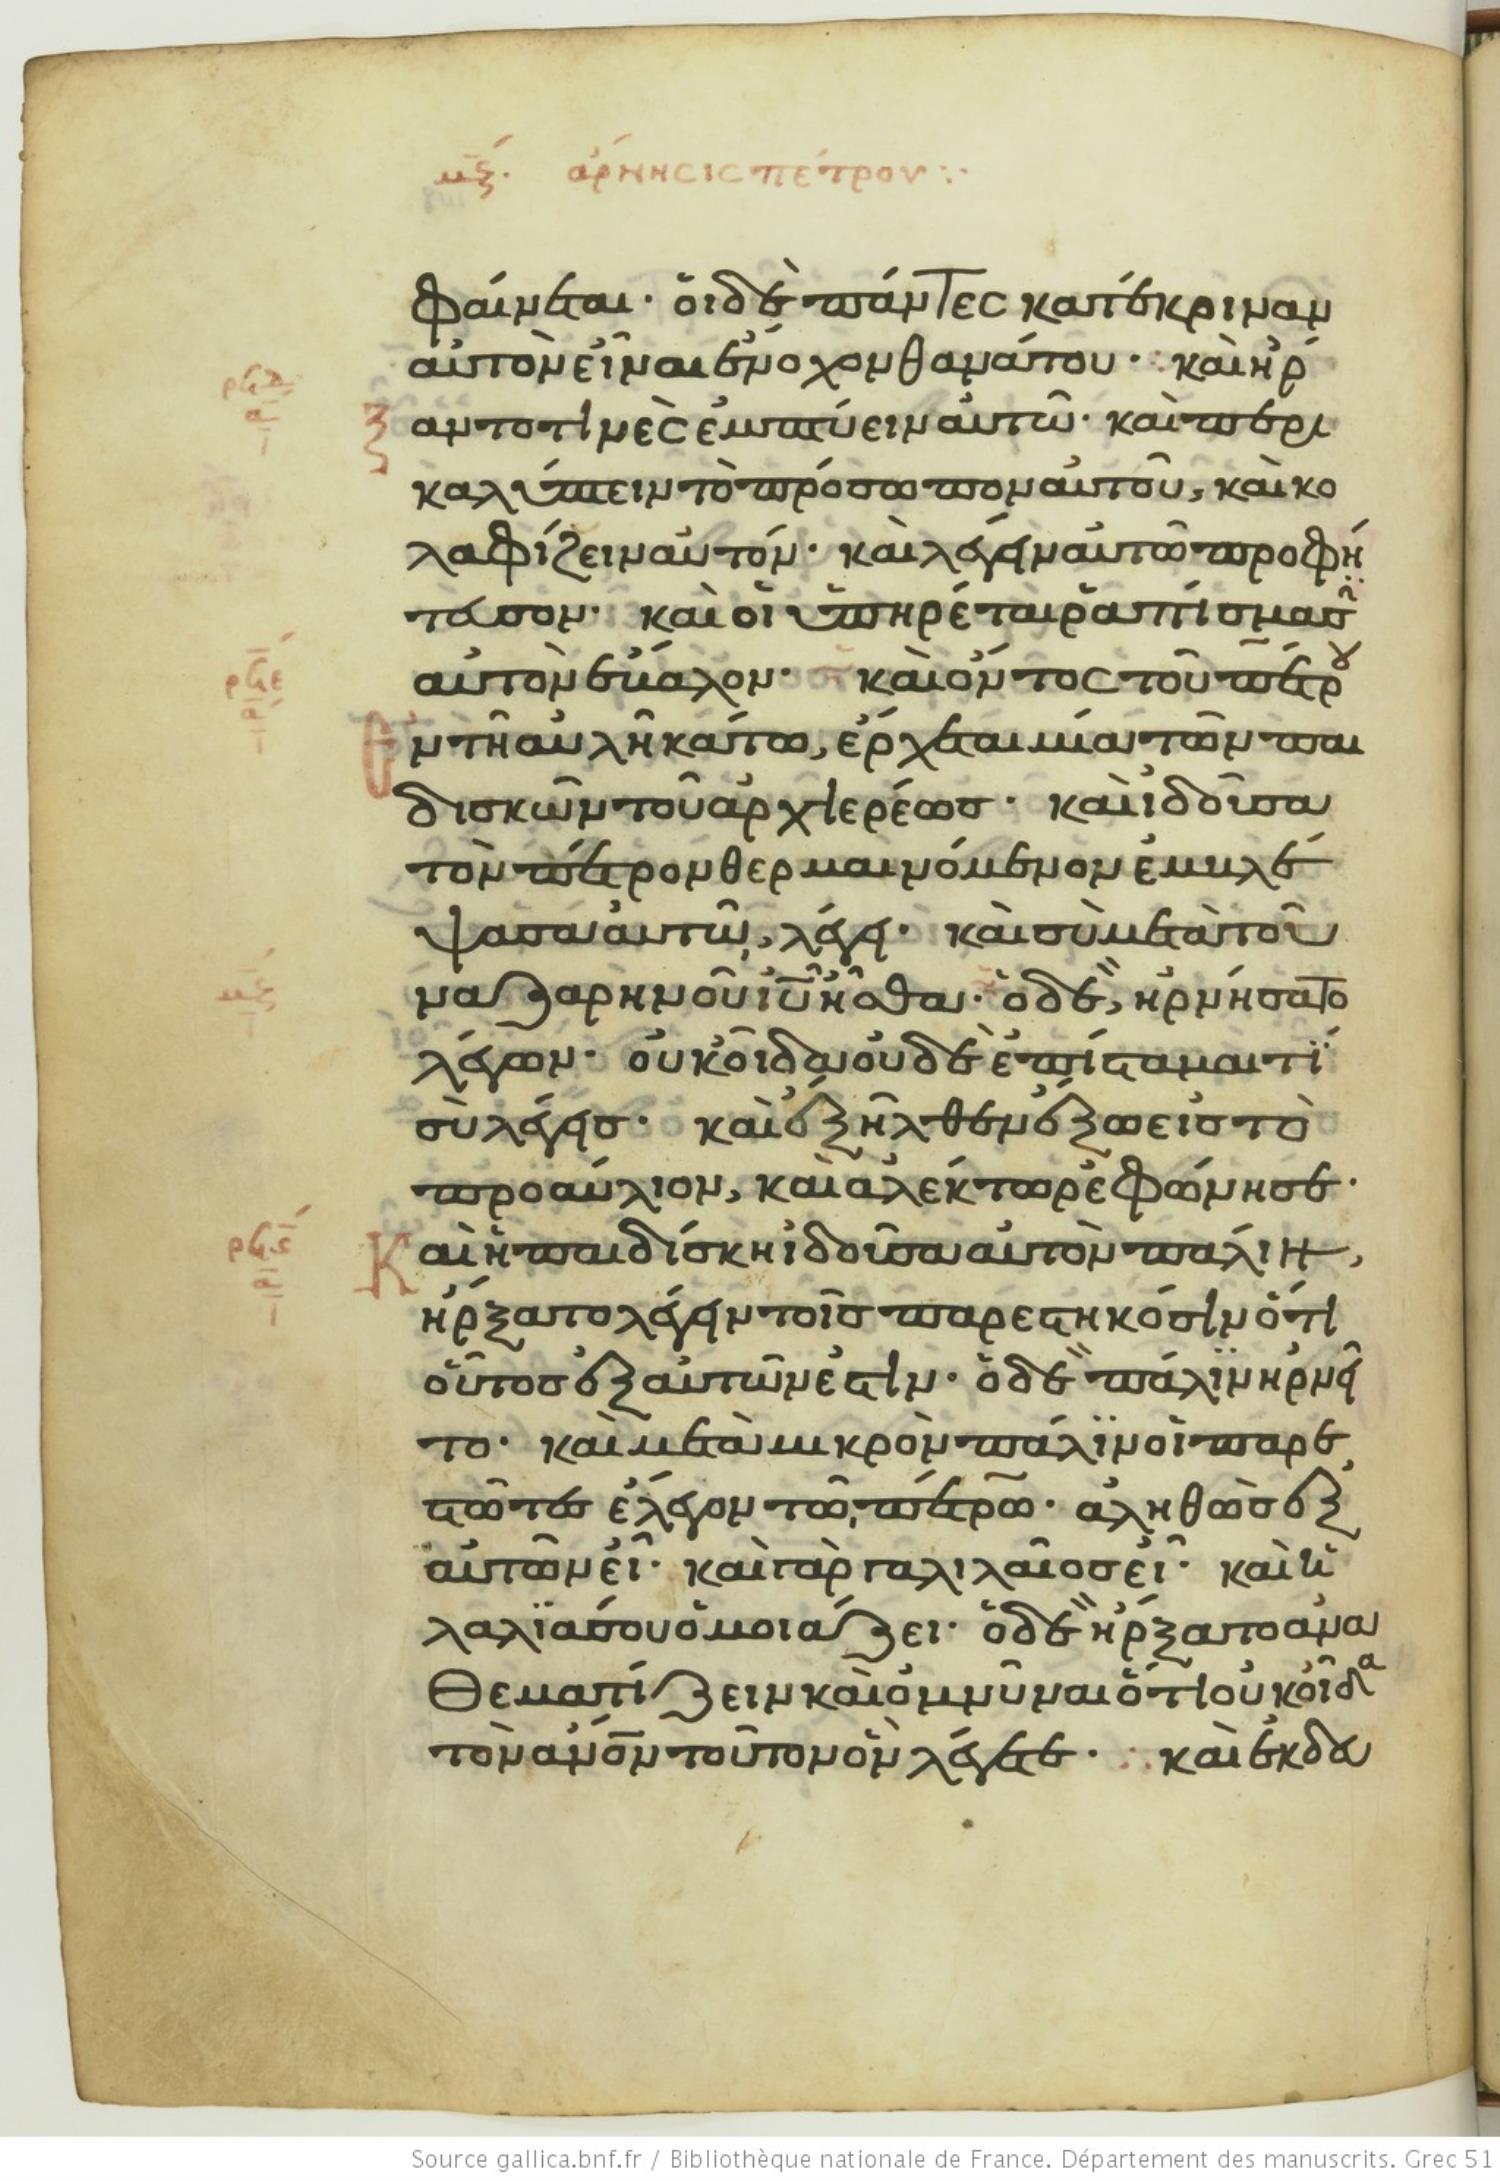 μξ. ἄρνησις πέτρου
φαίνεται· οἱ δὲ πάντες κατέκριναν
αὐτὸν εἶναι ἔνοχον θανάτου· καὶ ἤρ
ξαντό τινὲς ἐμπτύειν αὐτῶ· καὶ περι
καλύπτειν τὸ πρόσωπον αὐτοῦ, καὶ κο
λαφίζειν αὐτόν· καὶ λέγειν αὐτῶ προφή
τευσον· καὶ οἱ ὑπηρέται ῥαπίσμασιν
αὐτὸν ἔβαλον· καὶ ὄντος τοῦ πέτρου
ἐν τῆ αὐλῆ κάτω, ἔρχεται μία τῶν παι
δισκῶν τοῦ ἀρχιερέως· καὶ ἰδοῦσα
τὸν πέτρον θερμαινόμενον ἐμβλέ
ψασα αὐτῶ, λέγει· καὶ σὺ μετὰ τοῦ
ναζαρηνοῦ ιῦ ἦσθα· ὁ δὲ, ἠρνήσατο
λέγων· οὐκ οἶδα οὐδὲ ἐπίσταμαι τί
σὺ λέγεις· καὶ ἐξῆλθεν ἔξω εἰς τὸ
προαύλιον, καὶ ἀλέκτωρ ἐφώνησε·
Καὶ ἡ παιδίσκη ἰδοῦσα αὐτὸν πάλιν,
ἤρξατο λέγειν τοῖς παρεστηκόσιν ὅτι
οὗτος ἐξ αὐτῶν ἐστιν· ὁ δὲ πάλιν ἠρνεῖ
το· καὶ μετὰ μικρὸν πάλιν οἱ παρε
στῶτες ἔλεγον τῶ πέτρω· ἀληθῶς ἐξ
αὐτῶν εἶ· καὶ γὰρ γαλιλαῖος εἶ· καὶ ἡ
λαλιά σου ὁμοιάζει· ὁ δὲ ἤρξατο ἀνα
θεματίζειν καὶ ὀμνῦναι ὅτι οὐκ οἶδα
τὸν ἄνον τοῦτον ὃν λέγετε· καὶ ἐκ δευ
ρϟδ
α
ρϟε
α
μξ
ρϟς
α
Source gallica.bnf.fr / Bibliothèque nationale de France. Département des manuscrits. Grec 51